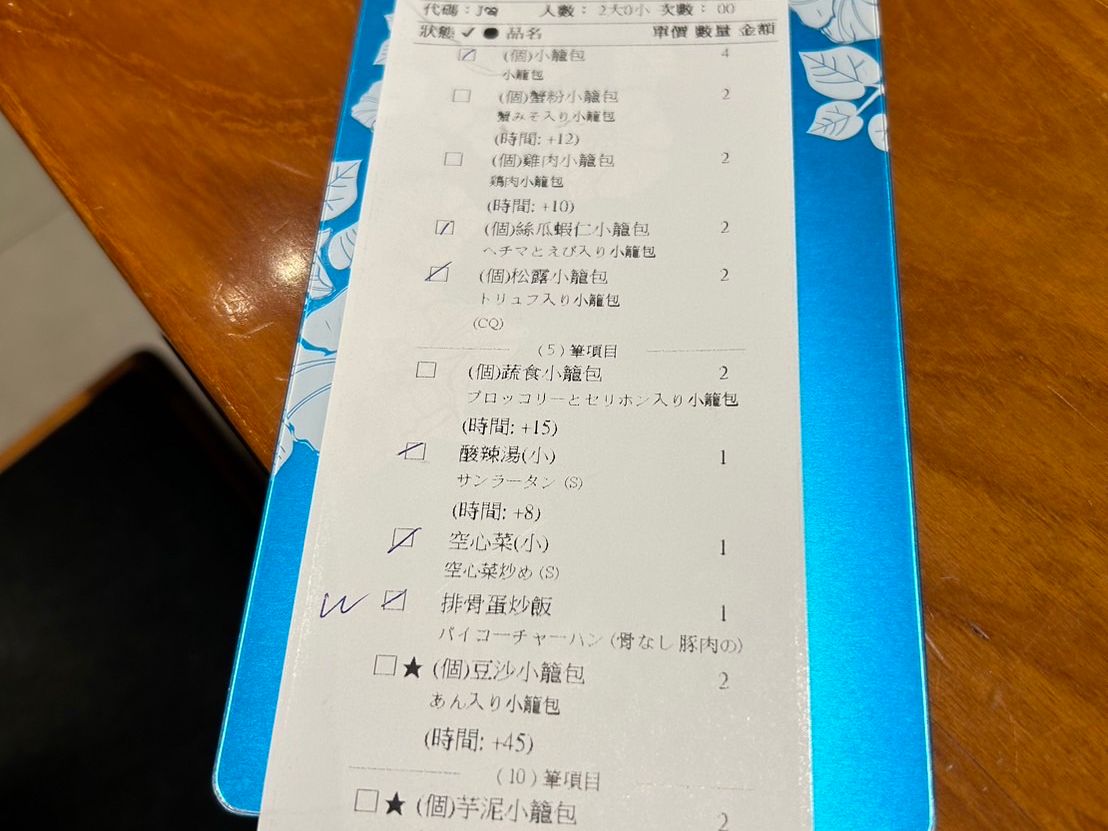 代碼：J 人數：2大0小 次數：00
狀態 ✓ ● 品名 單價 數量 金額
(個)小籠包 4
小籠包
(個)蟹粉小籠包 2
蟹みそ入り小籠包
(時間: +12)
(個)雞肉小籠包 2
鶏肉小籠包
(時間: +10)
(個)絲瓜蝦仁小籠包 2
ヘチマとえび入り小籠包
(個)松露小籠包 2
トリュフ入り小籠包
(CQ)
(5)筆項目
(個)蔬食小籠包 2
ブロッコリーとセリホン入り小籠包
(時間: +15)
酸辣湯(小) 1
サンラータン (S)
(時間: +8)
空心菜(小) 1
空心菜炒め (S)
排骨蛋炒飯 1
パイコーチャーハン (骨なし豚肉の)
★ (個)豆沙小籠包 2
あん入り小籠包
(時間: +45)
(10)筆項目
★ (個)芋泥小籠包 2